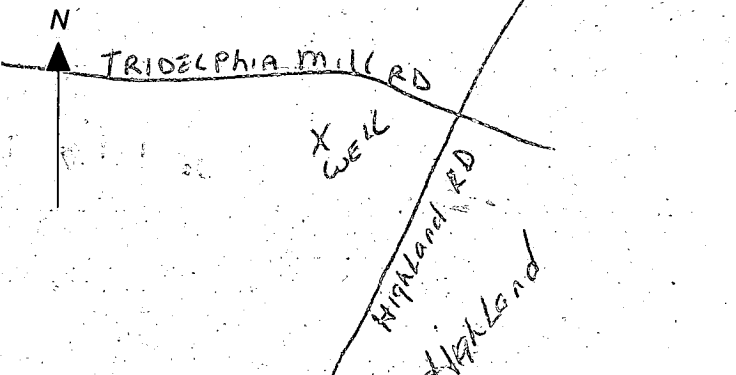 N
TRIDELPHIA Mill RD
X
WELL
HighLand RD
HighLand